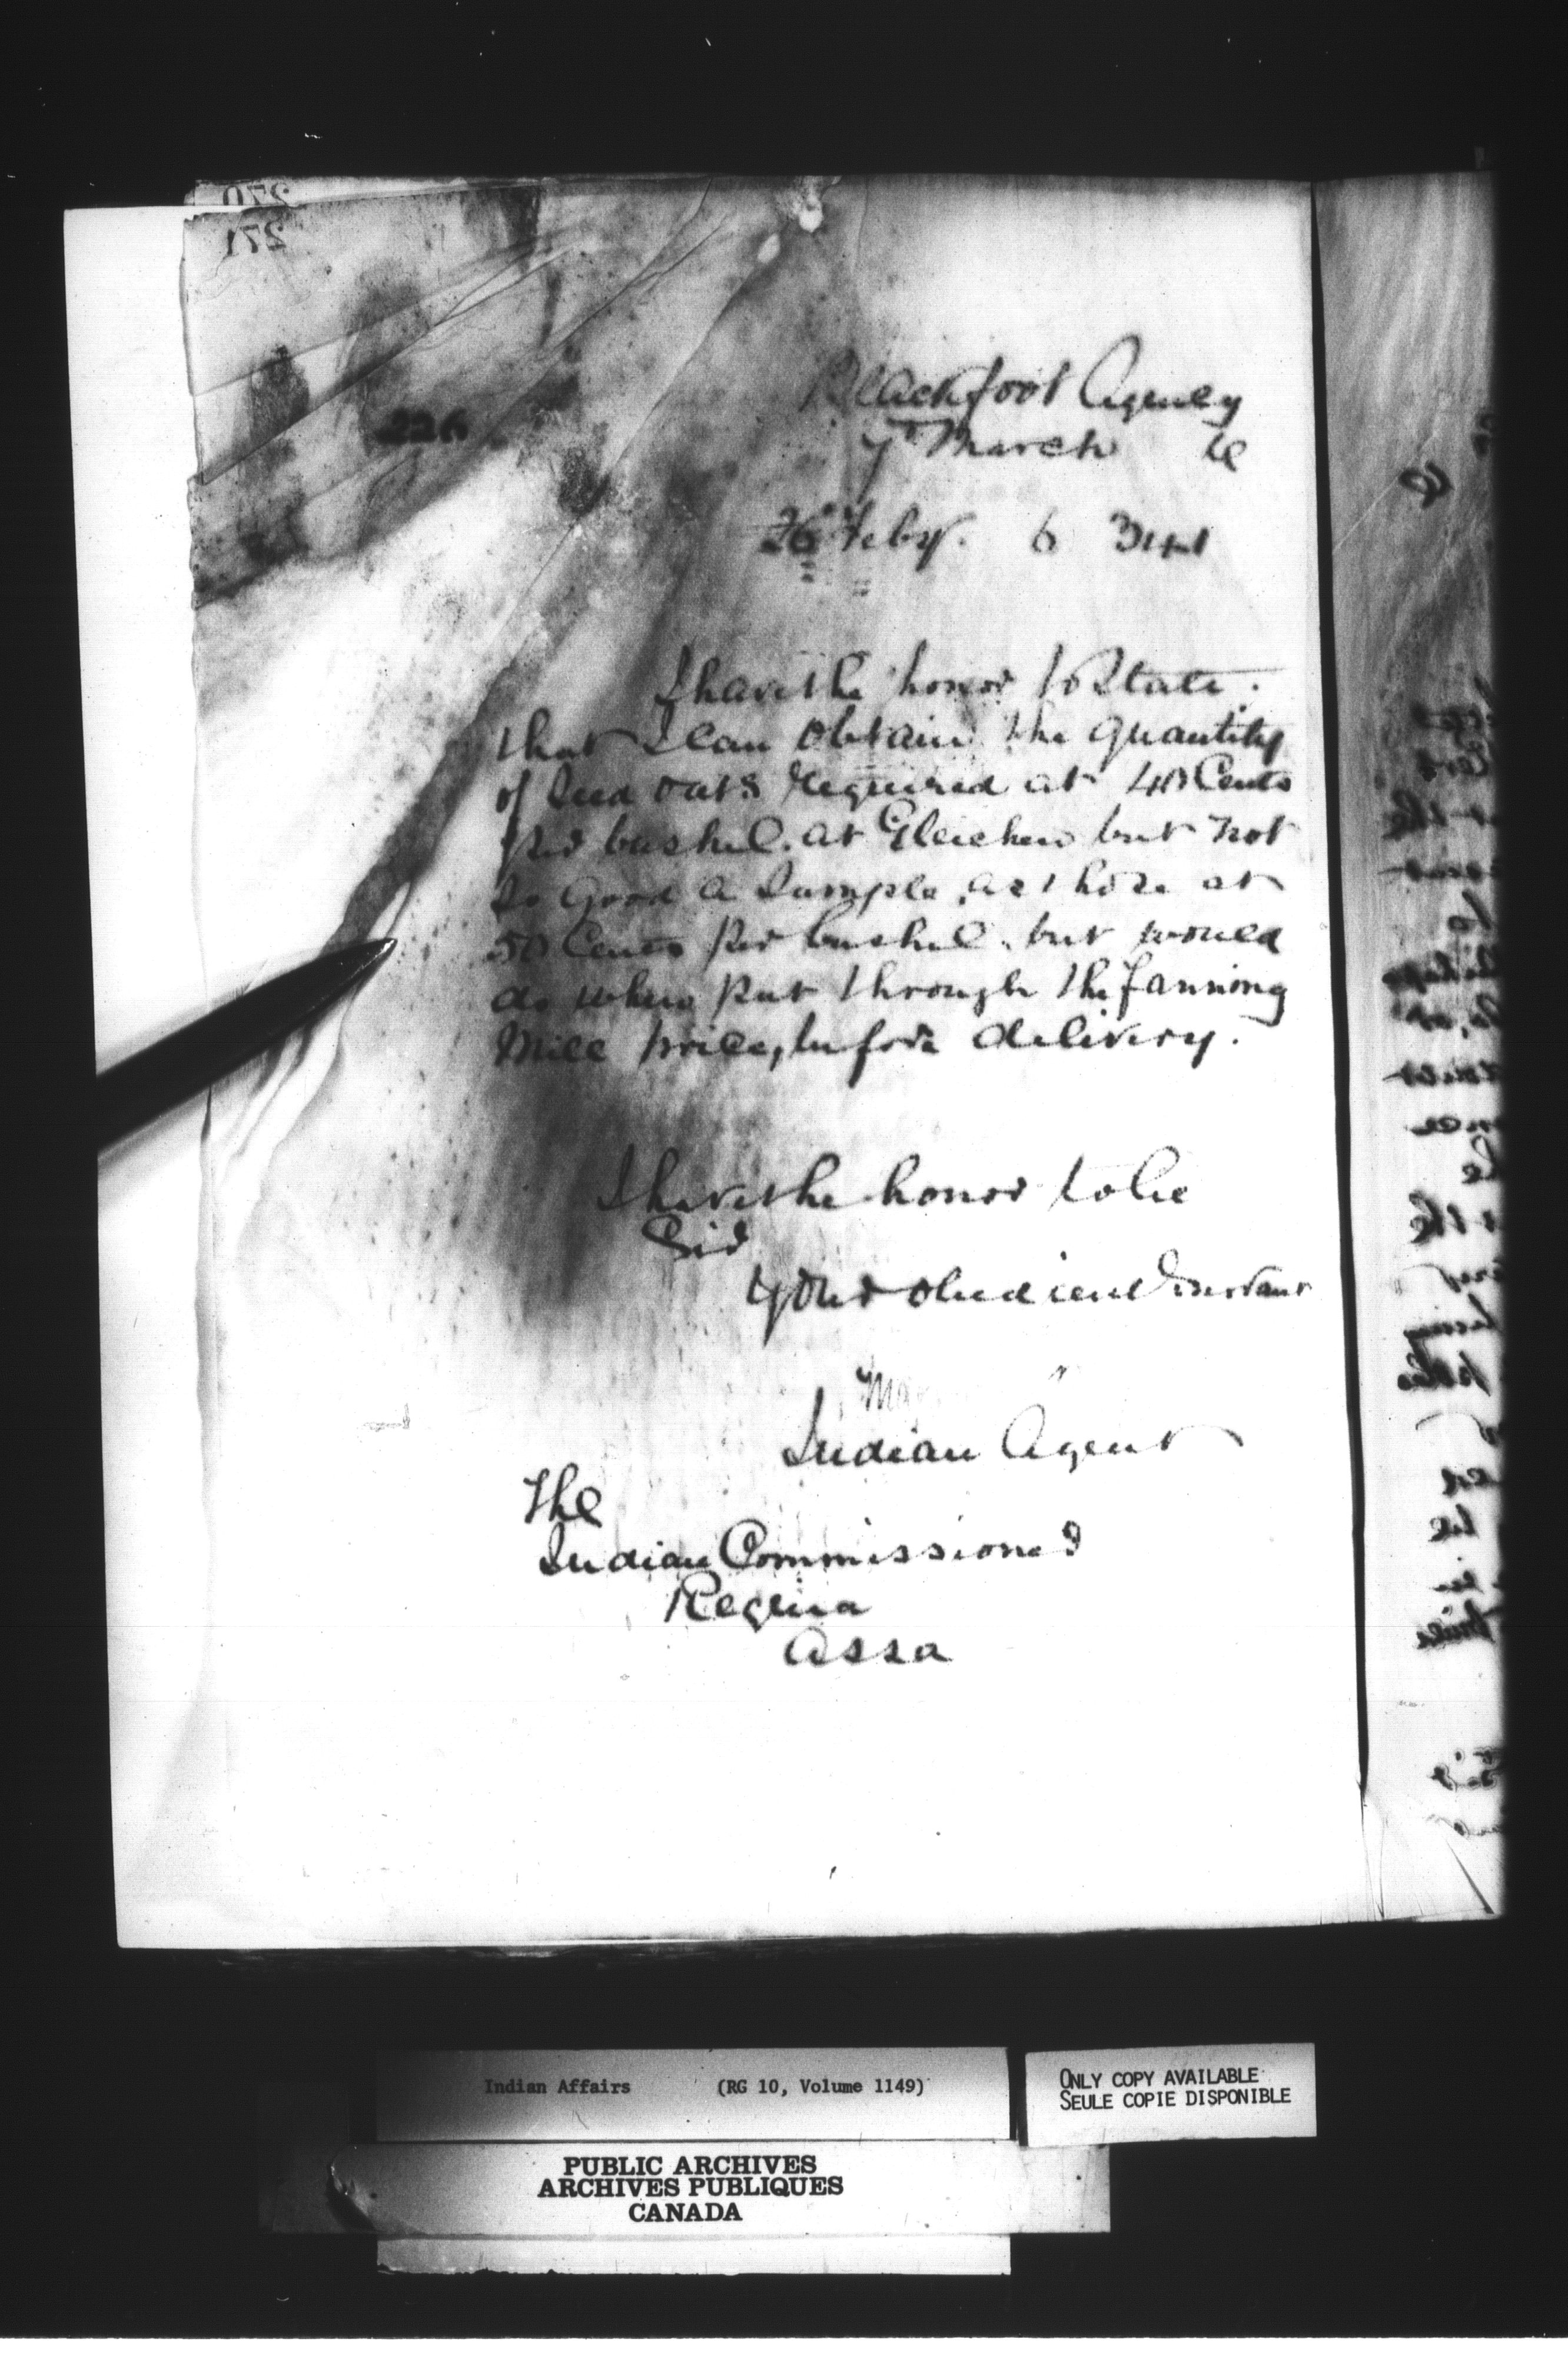 270
271
226
Blackfoot Agency
7th March
26 Feby. 6 3141
I have the honor to State.
that I can obtain the quantity
of Seed oats required at 40 Cents
per bushel. at Gleichen but not
so Good a Sample, as those at
50 Cents per bushel. but would
do when put through the fanning
Mill twice, before delivery.
I have the honor to be
Sir
Your obedient Servant
Indian Agent
The
Indian Commissioner
Regina
Assa
Indian Affairs (RG 10, Volume 1149)
ONLY COPY AVAILABLE
SEULE COPIE DISPONIBLE
PUBLIC ARCHIVES
ARCHIVES PUBLIQUES
CANADA